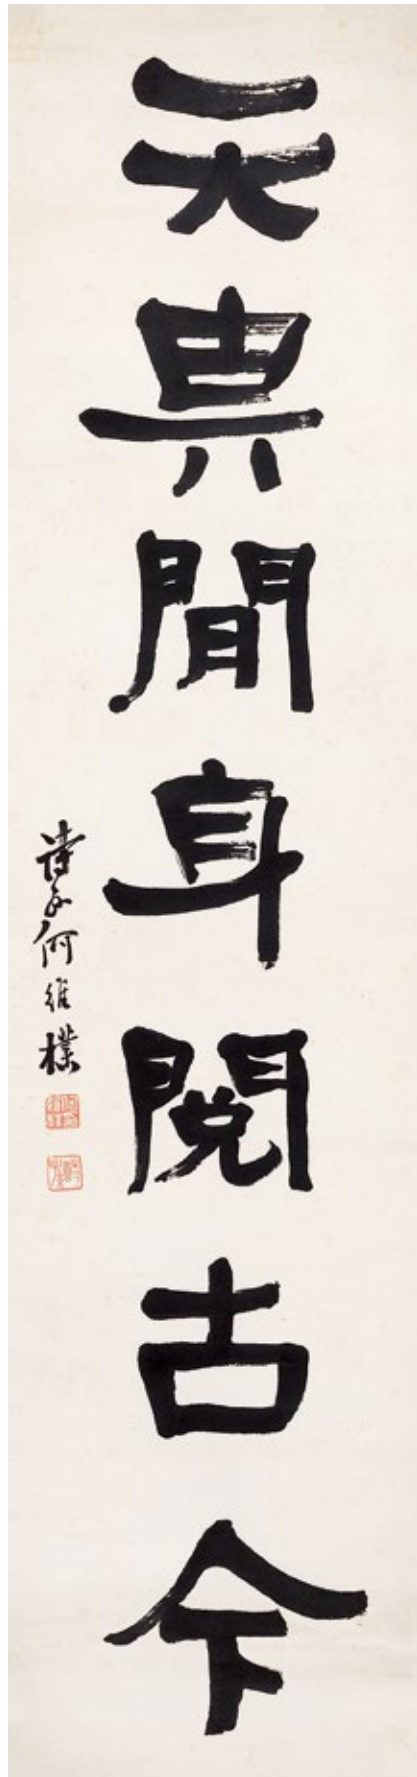 天畀閒身閱古今
詩孫何維樸